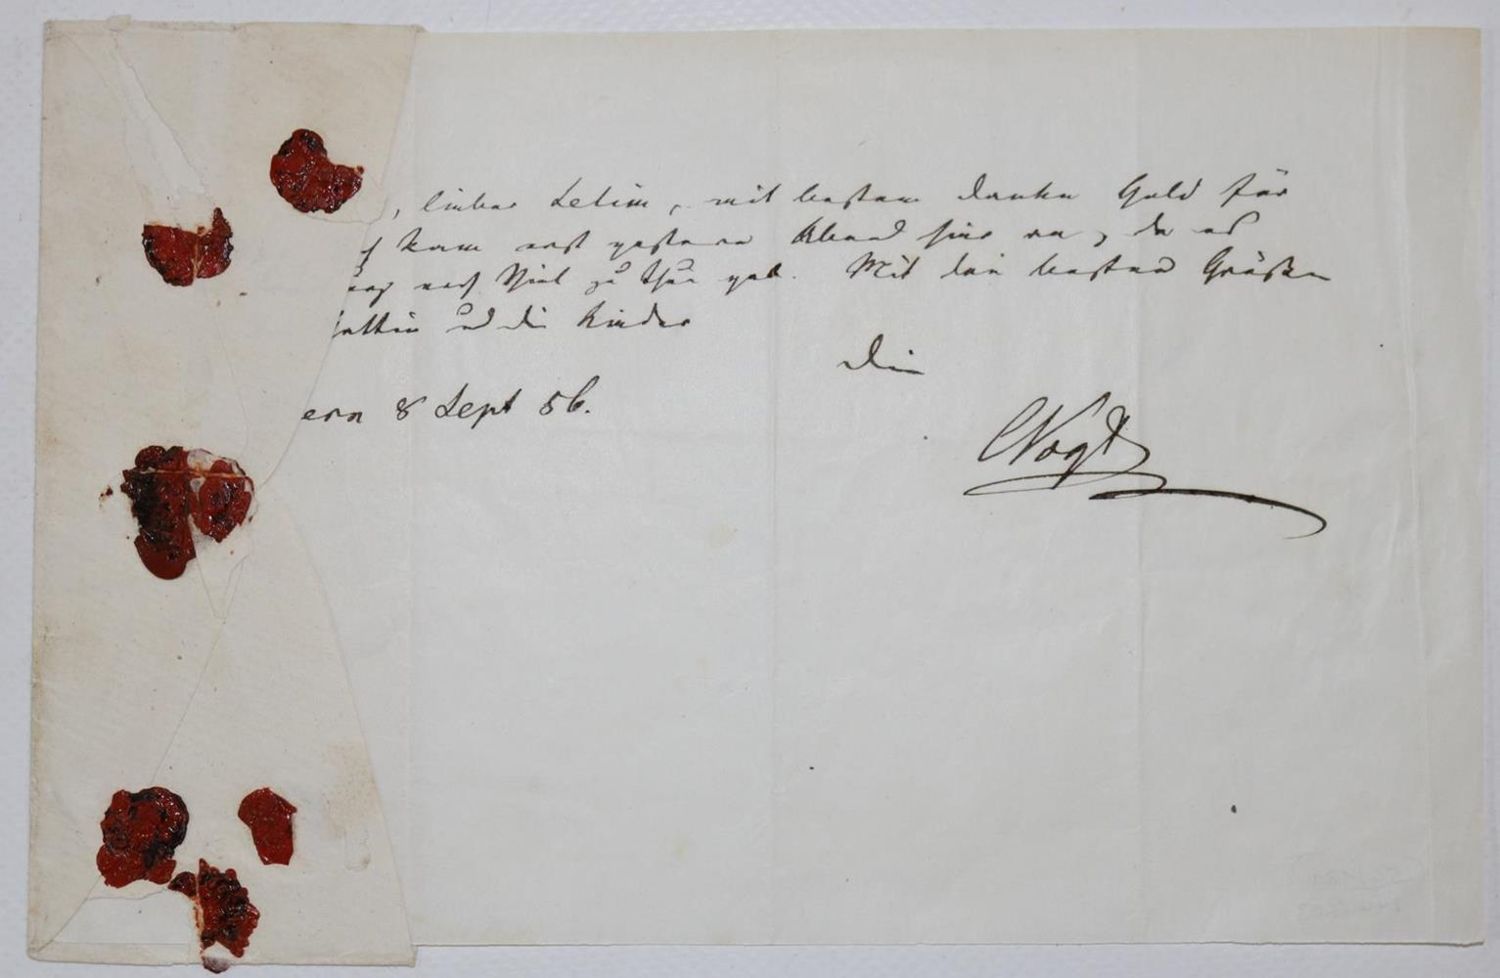 , lieber Letim, mit bestem Danke Geld für
h kam erst gestern Abend hier an, da es
noch viel zu thun gab. Mit den besten Grüßen
attin und die Kinder
Dein
ern 8 Sept 56.
CVogt